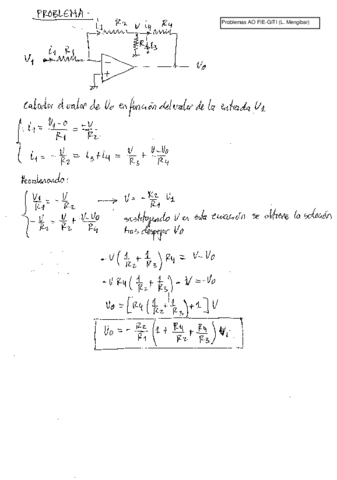 PROBLEMA-
Problemas AO F/E-GITI (L. Mengibar)
i1 R2 V i4 R4
V1 i1 R1 R3 i3
- +
V0
Calcular el valor de V0 en función del valor de la entrada V1
i1 = (V1-0)/R1 = -V/R2
i1 = -V/R2 = i3+i4 = V/R3 + (V-V0)/R4
Reordenando:
V1/R1 = -V/R2 → V = -R2/R1 V1
-V/R2 = V/R3 + (V-V0)/R4 sustituyendo V en esta ecuación se obtiene la solución
tras despejar V0
-V(1/R2 + 1/R3)R4 = V-V0
-V R4(1/R2 + 1/R3) - V = -V0
V0 = [R4(1/R2 + 1/R3) + 1] V
V0 = -R2/R1 (1 + R4/R2 + R4/R3) Vi